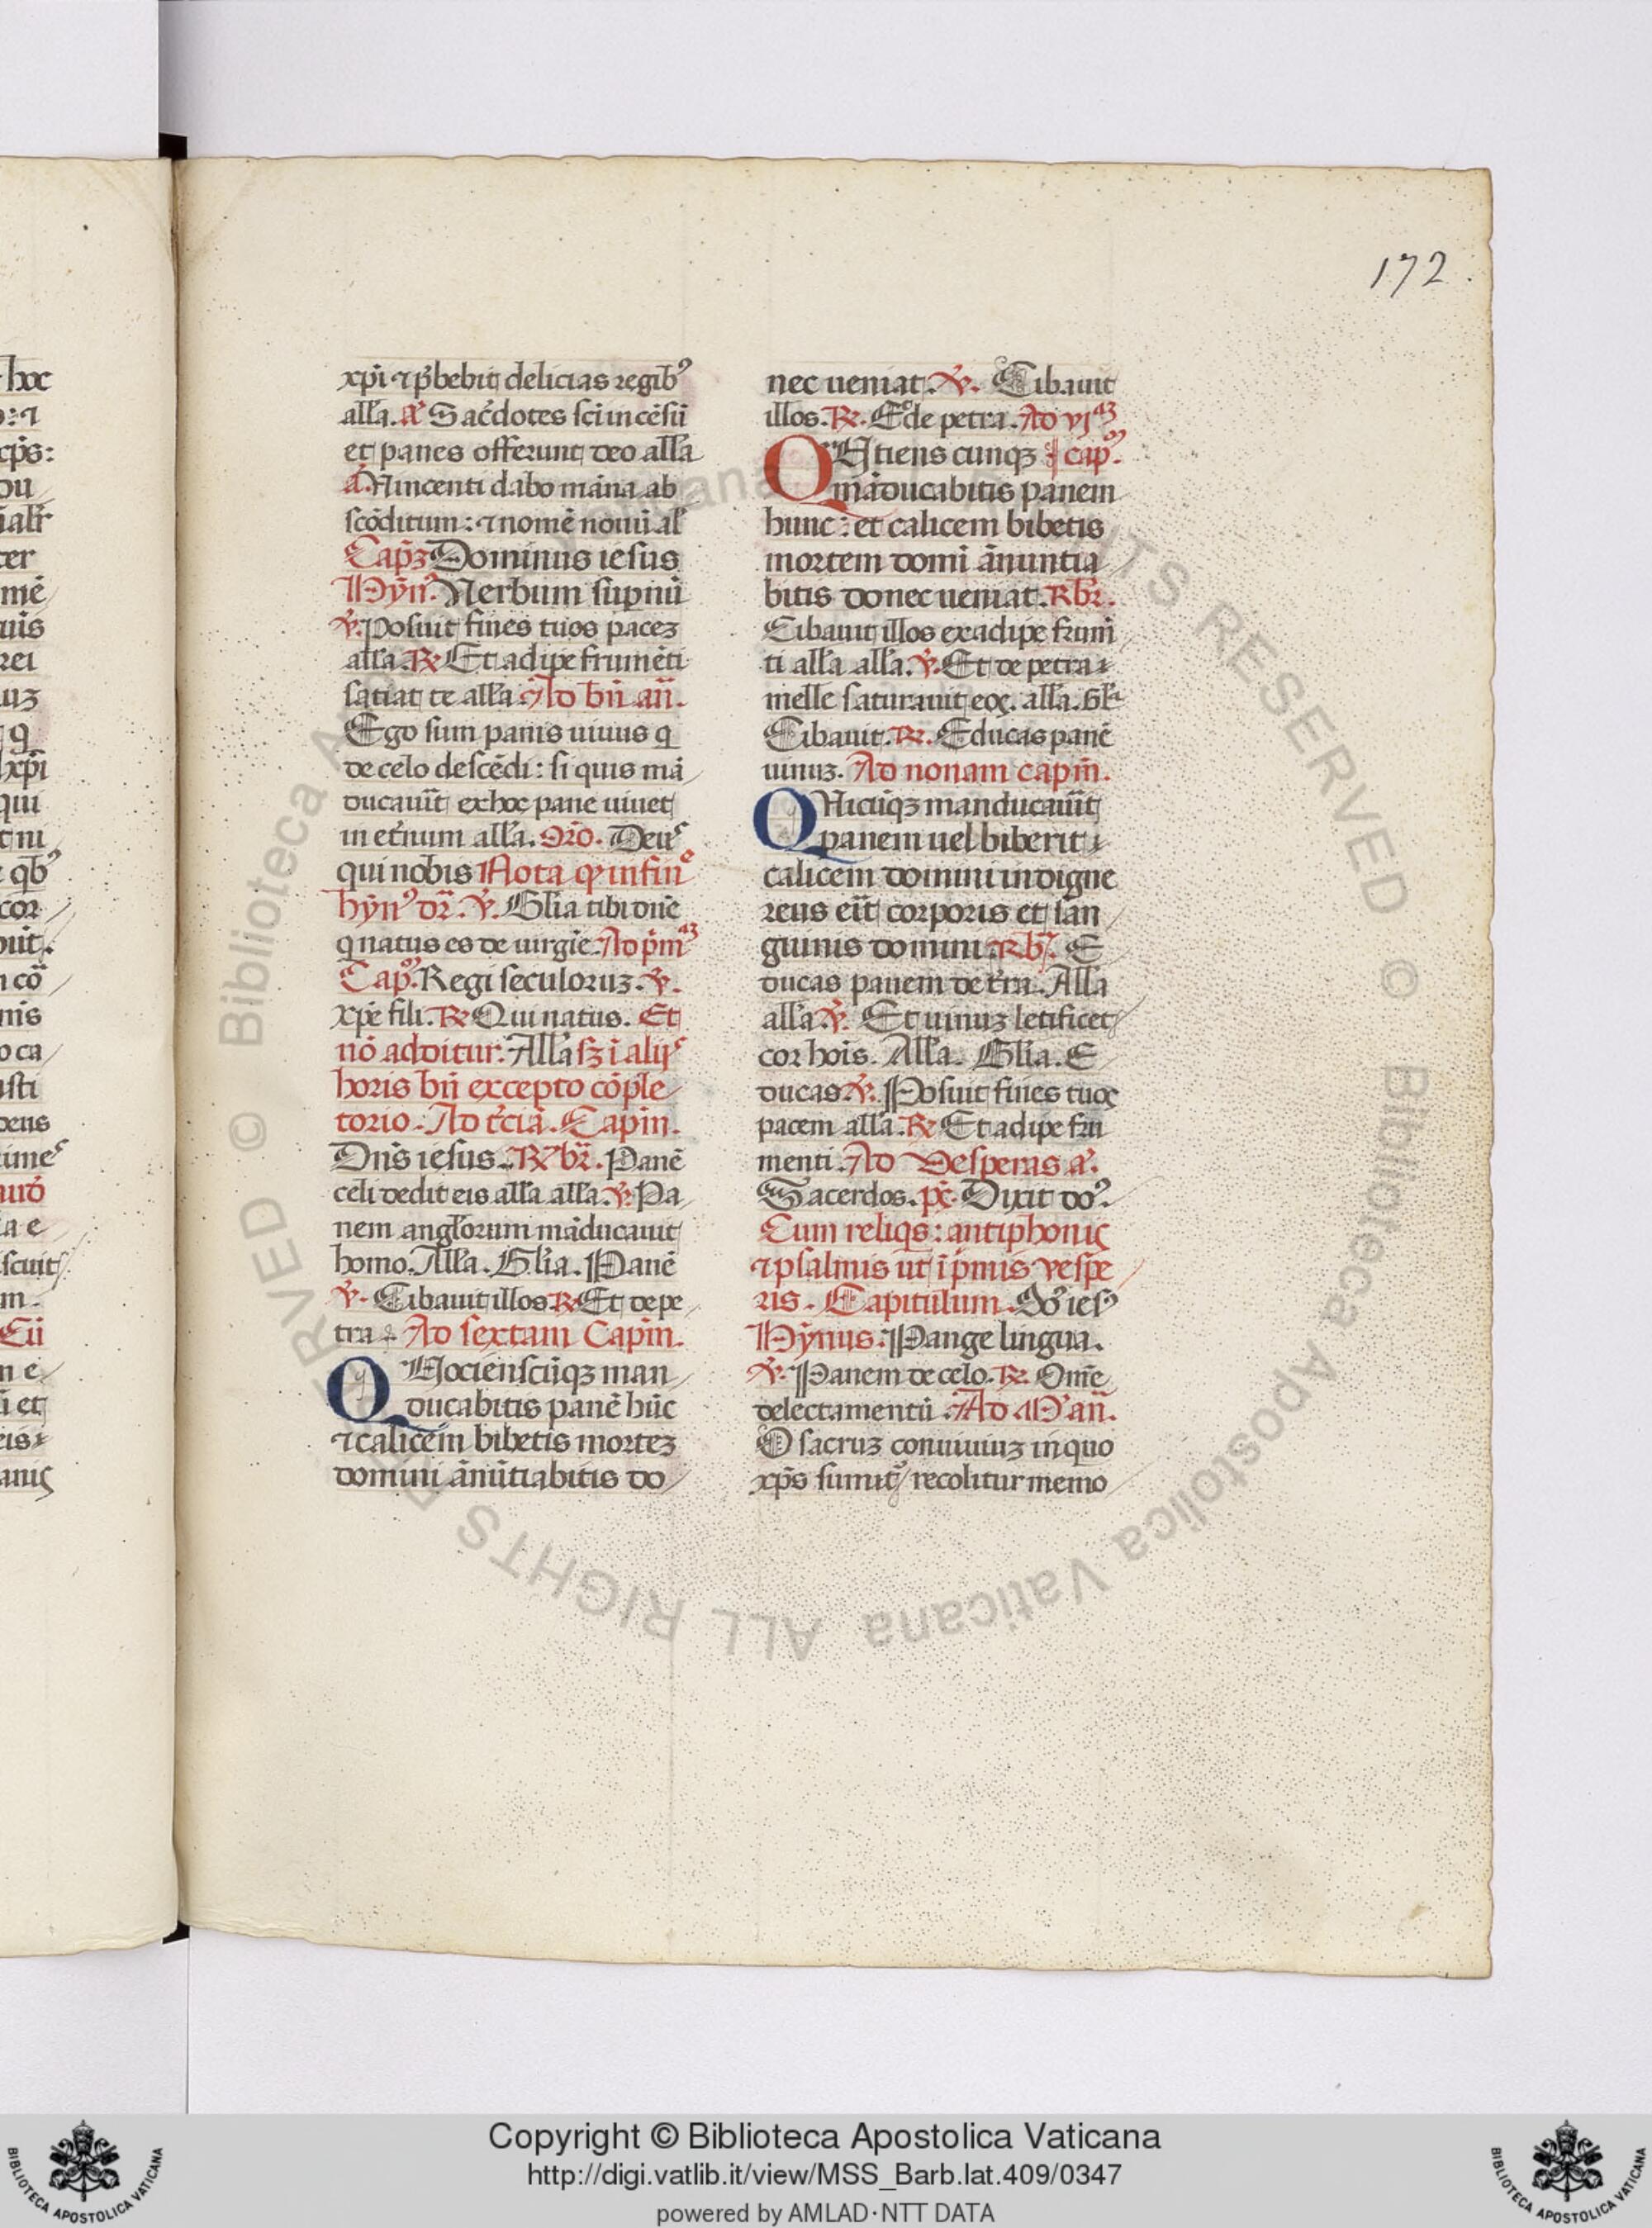 172
xp̄i ⁊ p̄bebit delicias regibꝰ
all'a. a᷎ Sac̄dotes sc̄i incēsū
et panes offerunt deo all'a
a᷎. Uincenti dabo māna ab
scōditum: ⁊ nomē nouū al'
Cap̄ꝫ Dominus iesus
Hȳnꝰ. Uerbum sup̄nū
℣. Posuit fines tuos paceꝫ
all'a. ℟ Et adipe frumēti
satiat te all'a. Ad bn̄ an̄.
Ego sum panis uiuus q
de celo descēdi: si quis mā
ducau̅it ex hoc pane uiuet
in et̄num all'a. Or̄o. Deus
qui nobis Nota ꝙ in fine
hȳnꝰ dr̄. ℣. Gl'ia tibi dn̄e
q natus es de uirgīe. Ad p̄mā
Cap̄. Regi seculoruꝫ. ℣.
xp̄e fili. ℟ Qui natus. Et
nō additur. All'a sꝫ ī alijs
horis bn̄ excepto cōple
torio. Ad t̄ciā. Capm̄.
Dn̄s iesus. ℟ br̄. Panē
celi dedit eis all'a all'a. ℣. Pa
nem angl'orum māducauit
homo. All'a. Gl'ia. Panē
℣. Cibauit illos ℟ Et de pe
tra. Ad sextam Capm̄.
Quociensc̄ūqꝫ man
ducabitis panē hūc
⁊ calicem bibetis morteꝫ
domini ānūtiabitis do
nec ueniat. ℣. Cibauit
illos. ℟. Et de petra. Ad vjaꝫ
Quatiens cunqꝫ capꝫ.
māducabitis panem
hunc: et calicem bibetis
mortem domī ānuntia
bitis donec ueniat. Rbr̄.
Cibauit illos ex adipe frum̄
ti all'a all'a. ℣. Et de petra
melle saturauit eoꝝ. all'a. Gl'a
Cibauit. ℟. Educas panē
uinuꝫ. Ad nonam capm̄.
Quicūqꝫ manducau̅it
panem uel biberit
calicem domini indigne
reus eīt corporis et san
guinis domini. Rbꝫ. E
ducas panem de t̄ra. All'a
all'a. ℣. Et uinuꝫ letificet
cor hoīs. All'a. Gl'ia. E
ducas ℣. Posuit fines tuoꝝ
pacem all'a. ℟ Et adipe fru
menti. Ad Vesperas a᷎.
Sacerdos. ps̄. Dixit doꝰ.
Cum reliqs: antiphonis
⁊ psalmis ut ī p̄mis vespe
ris. Capitulum. Dn̄s iesꝰ
Hȳnus. Pange lingua.
℣. Panem de celo. ℟. Om̄e
delectamentū. Ad M᷎ an̄.
O sacruꝫ conuiuiuꝫ in quo
xp̄s sumitᷣ recolitur memo
Copyright © Biblioteca Apostolica Vaticana
http://digi.vatlib.it/view/MSS_Barb.lat.409/0347
powered by AMLAD·NTT DATA
BIBLIOTECA APOSTOLICA VATICANA
BIBLIOTECA APOSTOLICA VATICANA